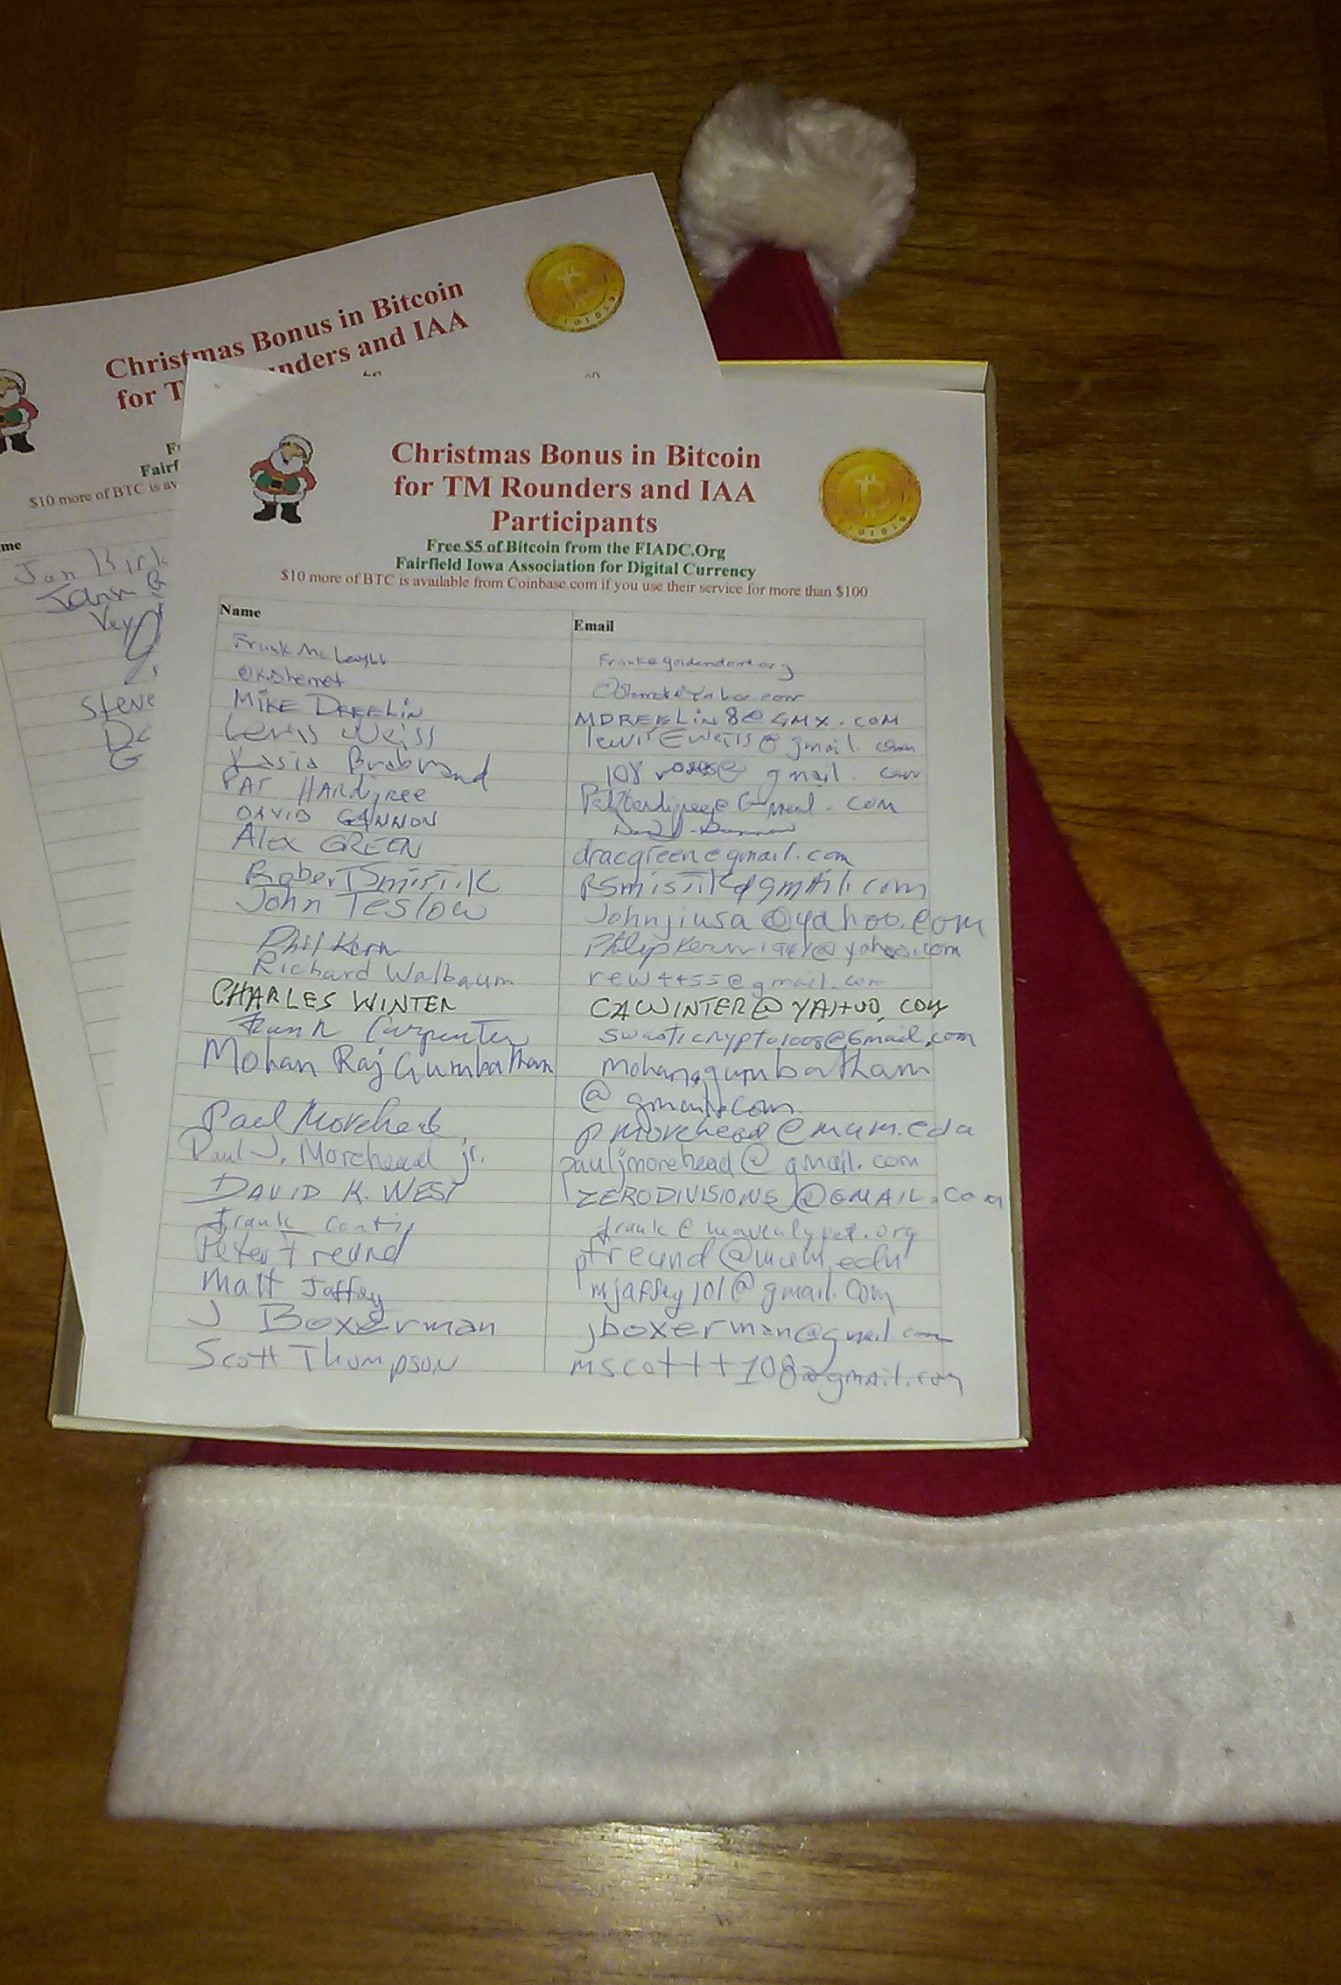 Christmas Bonus in Bitcoin
for T nders and IAA
Fairf
$10 more of BTC is av
me
Jan Kirk
John
Vey
Steve
Christmas Bonus in Bitcoin
for TM Rounders and IAA
Participants
Free $5 of Bitcoin from the FIADC.Org
Fairfield Iowa Association for Digital Currency
$10 more of BTC is available from Coinbase.com if you use their service for more than $100
Name Email
Frank
MIKE DREELIN MDREELIN8@GMX.COM
Lewis Weiss lewisEweiss@gmail.com
Kasia Brabrand 108roses@gmail.com
PAT HARDIGREE
DAVID GANNON
ALEX GREEN dracgreen@gmail.com
Robert Smistik RSmistik@gmail.com
John Teslow Johnjiusa@yahoo.com
Phil Kern
Richard Walbaum rew4455@gmail.com
CHARLES WINTER CAWINTER@YAHOO.COM
Frank Carpenter swasticrypto1008@Gmail.com
Mohan Raj Gumbatham mohan.gumbatham
@gmail.com
Paul Morehead pmorehead@mum.edu
Paul J. Morehead jr. pauljmorehead@gmail.com
DAVID K. WEST ZERODIVISIONS@GMAIL.COM
Frank frank@heavenlypet.org
Peter Freund pfreund@mum.edu
Matt Jaffey mjaffey101@gmail.com
J Boxerman jboxerman@gmail.com
Scott Thompson mscottt108@gmail.com